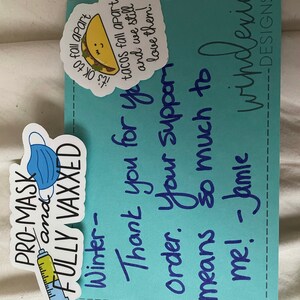 IT'S OK TO FALL APART
TACOS FALL APART
AND WE STILL
LOVE THEM!
PRO-MASK
and
FULLY VAXXED
Winter-
Thank you for
order. Your support
means so much to
me! -Jamie
DESIGNS